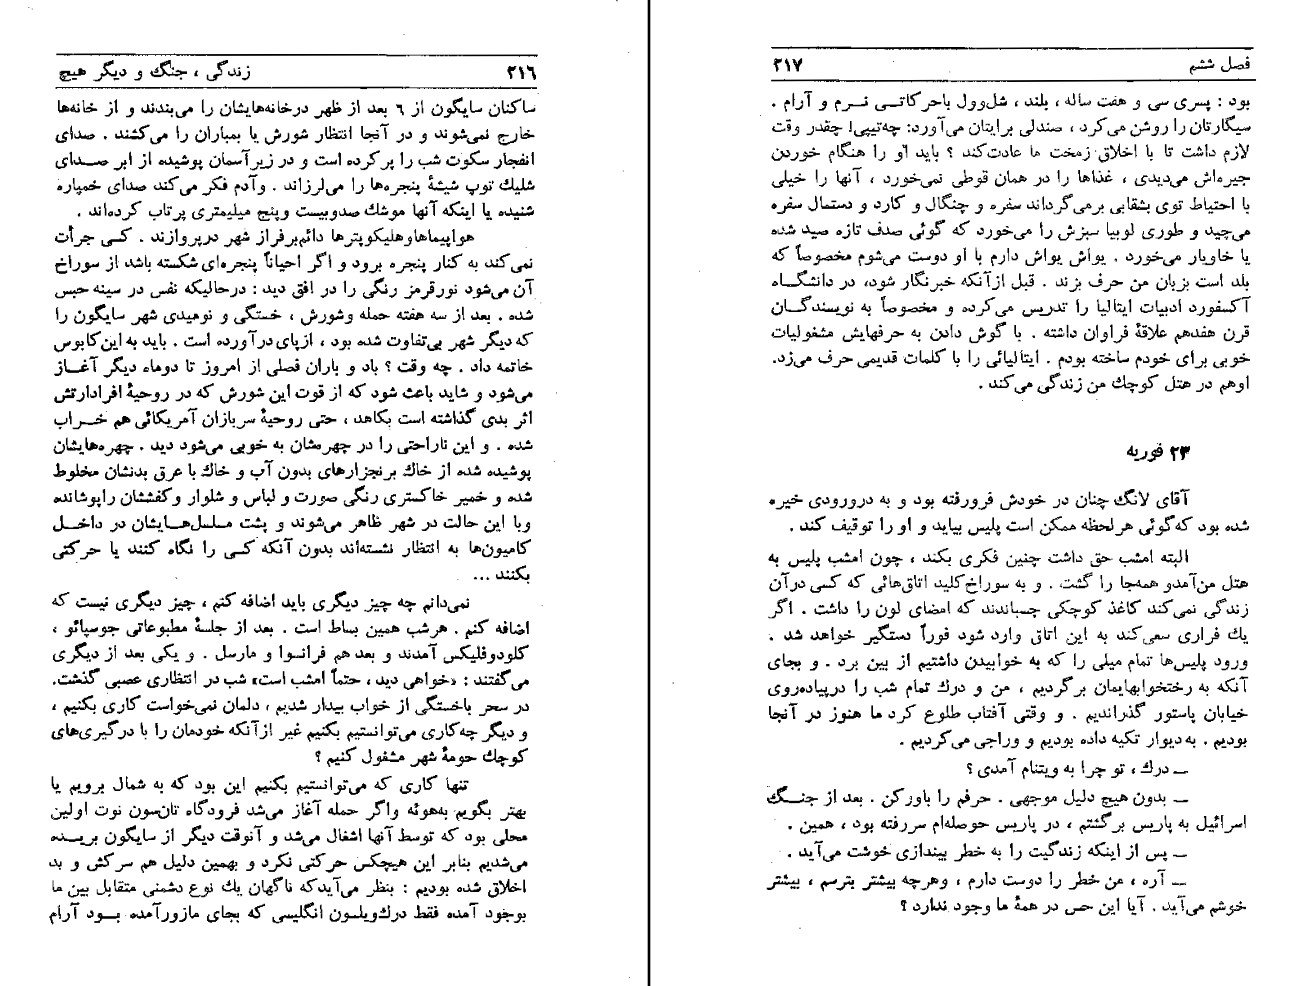 ۲۱۶ زندگی ، جنگ و دیگر هیچ
ساکنان سایگون از ۶ بعد از ظهر درخانه‌هایشان را می‌بندند و از خانه‌ها
خارج نمی‌شوند و در آنجا انتظار شورش یا بمباران را می‌کشند . صدای
انفجار سکوت شب را پرکرده است و در زیرآسمان پوشیده از ابر صدای
شلیك توپ شیشهٔ پنجره‌ها را می‌لرزاند . وآدم فکر می‌کند صدای خمپاره
شنیده یا اینکه آنها موشك صدوبیست وپنج میلیمتری پرتاب کرده‌اند .
هواپیماهاوهلیکوپترها دائم‌برفراز شهر درپروازند . کسی جرأت
نمی‌کند به کنار پنجره برود و اگر احیاناً پنجره‌ای شکسته باشد از سوراخ
آن می‌شود نورقرمز رنگی را در افق دید : درحالیکه نفس در سینه حبس
شده . بعد از سه هفته حمله وشورش ، خستگی و نومیدی شهر سایگون را
که دیگر شهر بی‌تفاوت شده بود ، ازپای درآورده است . باید به این‌کابوس
خاتمه داد . چه وقت ؟ باد و باران فصلی از امروز تا دوماه دیگر آغاز
می‌شود و شاید باعث شود که از قوت این شورش که در روحیهٔ افرادارتش
اثر بدی گذاشته است بکاهد ، حتی روحیهٔ سربازان آمریکائی هم خراب
شده . و این ناراحتی را در چهره‌شان به خوبی می‌شود دید . چهره‌هایشان
پوشیده شده از خاك برنجزارهای بدون آب و خاك با عرق بدنشان مخلوط
شده و خمیر خاکستری رنگی صورت و لباس و شلوار وکفششان راپوشانده
وبا این حالت در شهر ظاهر می‌شوند و پشت مسلسل‌هایشان در داخل
کامیون‌ها به انتظار نشسته‌اند بدون آنکه کسی را نگاه کنند یا حرکتی
بکنند ...
نمی‌دانم چه چیز دیگری باید اضافه کنم ، چیز دیگری نیست که
اضافه کنم . هرشب همین بساط است . بعد از جلسهٔ مطبوعاتی جوسپائو ،
کلودوفلیکس آمدند و بعد هم فرانسوا و مارسل . و یکی بعد از دیگری
می‌گفتند : «خواهی دید ، حتماً امشب است» شب در انتظاری عصبی گذشت.
در سحر باخستگی از خواب بیدار شدیم ، دلمان نمی‌خواست کاری بکنیم ،
و دیگر چه‌کاری می‌توانستیم بکنیم غیر ازآنکه خودمان را با درگیری‌های
کوچك حومهٔ شهر مشغول کنیم ؟
تنها کاری که می‌توانستیم بکنیم این بود که به شمال برویم یا
بهتر بگویم به‌هوئه واگر حمله آغاز می‌شد فرودگاه تان‌سون نوت اولین
محلی بود که توسط آنها اشغال می‌شد و آنوقت دیگر از سایگون بریده
می‌شدیم بنابر این هیچکس حرکتی نکرد و بهمین دلیل هم سرکش و بد
اخلاق شده بودیم : بنظر می‌آیدکه ناگهان یك نوع دشمنی متقابل بین ما
بوجود آمده فقط درك‌ویلسون انگلیسی که بجای مازورآمده بود آرام
۲۱۷ فصل ششم
بود : پسری سی و هفت ساله ، بلند ، شل‌وول باحرکاتی نرم و آرام .
سیگارتان را روشن می‌کرد ، صندلی برایتان می‌آورد: چه‌تیپی! چقدر وقت
لازم داشت تا با اخلاق زمخت ما عادت‌کند ؟ باید او را هنگام خوردن
جیره‌اش می‌دیدی ، غذاها را در همان قوطی نمی‌خورد ، آنها را خیلی
با احتیاط توی بشقابی برمی‌گرداند سفره و چنگال و کارد و دستمال سفره
می‌چید و طوری لوبیا سبزش را می‌خورد که گوئی صدف تازه صید شده
یا خاویار می‌خورد . یواش یواش دارم با او دوست می‌شوم مخصوصاً که
بلد است بزبان من حرف بزند . قبل ازآنکه خبرنگار شود، در دانشگاه
آکسفورد ادبیات ایتالیا را تدریس می‌کرده و مخصوصاً به نویسندگان
قرن هفدهم علاقهٔ فراوان داشته . با گوش دادن به حرفهایش مشغولیات
خوبی برای خودم ساخته بودم . ایتالیائی را با کلمات قدیمی حرف می‌زد.
اوهم در هتل کوچك من زندگی می‌کند .
۲۳ فوریه
آقای لانگ چنان در خودش فرورفته بود و به درورودی خیره
شده بود که‌گوئی هرلحظه ممکن است پلیس بیاید و او را توقیف کند .
البته امشب حق داشت چنین فکری بکند ، چون امشب پلیس به
هتل من‌آمدو همه‌جا را گشت . و به سوراخ‌کلید اتاق‌هائی که کسی درآن
زندگی نمی‌کند کاغذ کوچکی چسباندند که امضای لون را داشت . اگر
یك فراری سعی‌کند به این اتاق وارد شود فوراً دستگیر خواهد شد .
ورود پلیس‌ها تمام میلی را که به خوابیدن داشتیم از بین برد . و بجای
آنکه به رختخوابهایمان برگردیم ، من و درك تمام شب را درپیاده‌روی
خیابان پاستور گذراندیم . و وقتی آفتاب طلوع کرد ما هنوز در آنجا
بودیم . به‌دیوار تکیه داده بودیم و وراجی می‌کردیم .
ــ درك ، تو چرا به ویتنام آمدی ؟
ــ بدون هیچ دلیل موجهی . حرفم را باورکن . بعد از جنگ
اسرائیل به پاریس برگشتم ، در پاریس حوصله‌ام سررفته بود ، همین .
ــ پس از اینکه زندگیت را به خطر بیندازی خوشت می‌آید .
ــ آره ، من خطر را دوست دارم ، وهرچه بیشتر بترسم ، بیشتر
خوشم می‌آید . آیا این حس در همهٔ ما وجود ندارد ؟